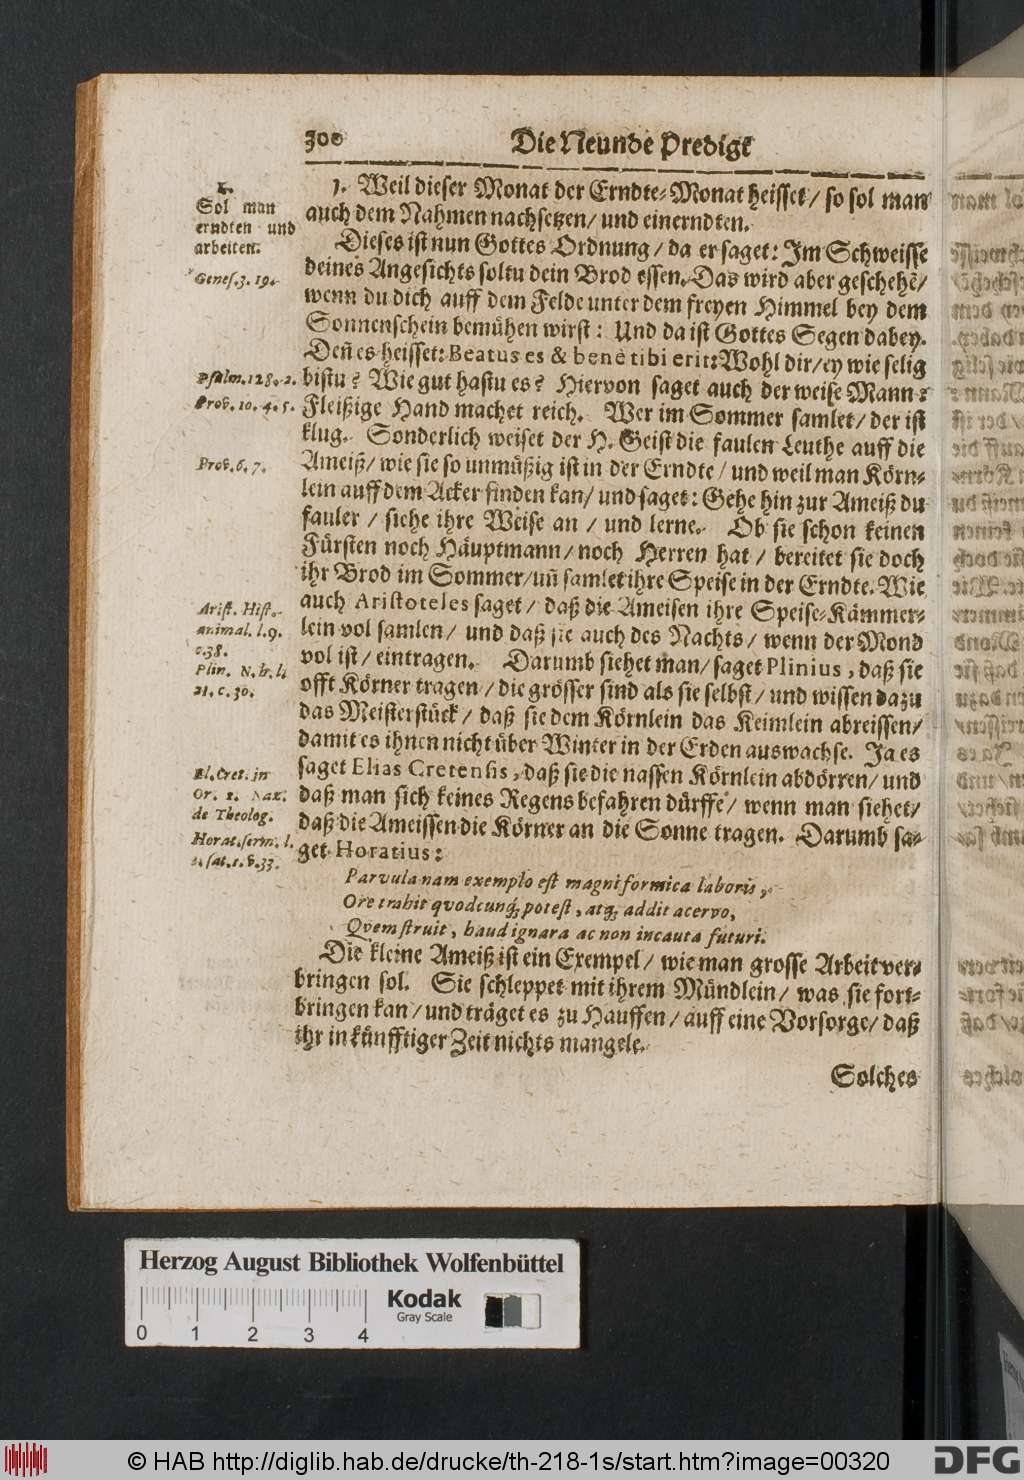 300 Die Neunde Predigt
1. Weil dieser Monat der Erndte-Monat heisset/ so sol man
auch dem Nahmen nachsetzen/ und einerndten.
Dieses ist nun Gottes Ordnung/ da er saget: Im Schweisse
deines Angesichts soltu dein Brod essen. Das wird aber geschehē/
wenn du dich auff dem Felde unter dem freyen Himmel bey dem
Sonnenschein bemühen wirst: Und da ist Gottes Segen dabey.
Deñ es heisset: Beatus es & benè tibi erit: Wohl dir/ ey wie selig
bistu? Wie gut hastu es? Hiervon saget auch der weise Mann:
Fleißige Hand machet reich. Wer im Sommer samlet/ der ist
klug. Sonderlich weiset der H. Geist die faulen Leuthe auff die
Ameiß/ wie sie so unmüßig ist in der Erndte/ und weil man Körn-
lein auff dem Acker finden kan/ und saget: Gehe hin zur Ameiß du
fauler/ siehe ihre Weise an/ und lerne. Ob sie schon keinen
Fürsten noch Häuptmann/ noch Herren hat/ bereitet sie doch
ihr Brod im Sommer/ uñ samlet ihre Speise in der Erndte. Wie
auch Aristoteles saget/ daß die Ameisen ihre Speise-Kämmer-
lein vol samlen/ und daß sie auch des Nachts/ wenn der Mond
vol ist/ eintragen. Darumb siehet man/ saget Plinius, daß sie
offt Körner tragen/ die grösser sind als sie selbst/ und wissen dazu
das Meisterstück/ daß sie dem Körnlein das Keimlein abreissen/
damit es ihnen nicht über Winter in der Erden auswachse. Ja es
saget Elias Cretensis, daß sie die nassen Körnlein abdörren/ und
daß man sich keines Regens befahren dürffe/ wenn man siehet/
daß die Ameissen die Körner an die Sonne tragen. Darumb sa-
get Horatius:
Parvula nam exemplo est magni formica laboris,
Ore trahit qvodcunq; potest, atq; addit acervo,
Qvem struit, haud ignara ac non incauta futuri.
Die kleine Ameiß ist ein Exempel/ wie man grosse Arbeit ver-
bringen sol. Sie schleppet mit ihrem Mündlein/ was sie fort-
bringen kan/ und träget es zu Hauffen/ auff eine Vorsorge/ daß
ihr in künfftiger Zeit nichts mangele.
Solches
1.
Sol man
erndten und
arbeiten.
Genes. 3. 19.
Psalm. 128. 2.
Prov. 10. 4. 5.
Prov. 6. 7.
Arist. Hist.
animal. l. 9.
c. 38.
Plin. N. h. li
21. c. 30.
El. Cret. in
Or. 1. Naz.
de Theolog.
Horat. serm. l.
1. sat. 1. v. 33.
Herzog August Bibliothek Wolfenbüttel
Kodak
Gray Scale
0 1 2 3 4
© HAB http://diglib.hab.de/drucke/th-218-1s/start.htm?image=00320
DFG